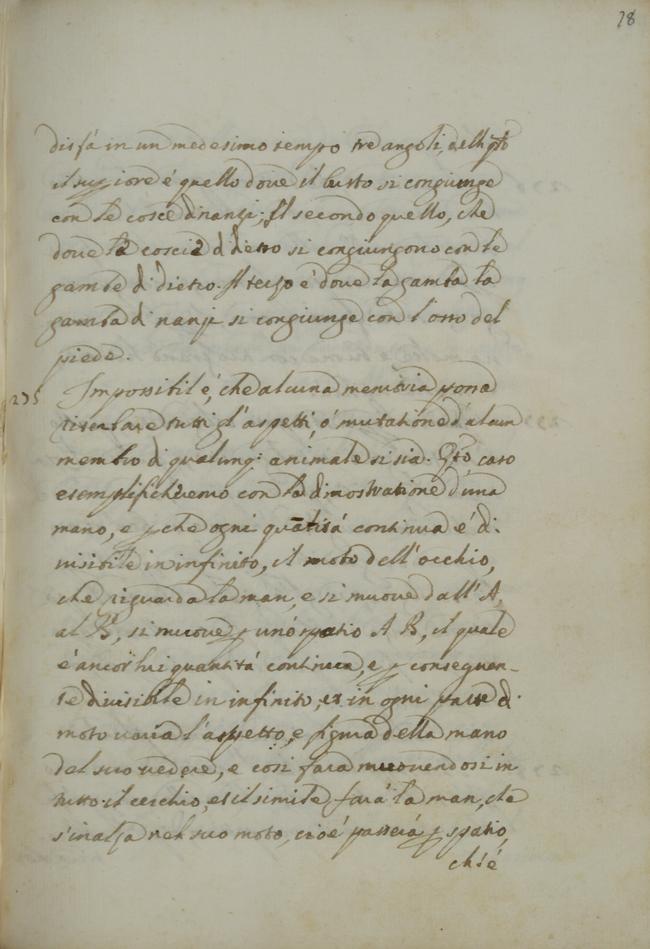 28
disfa in un medesimo tempo tre angoli, delli qti
il supiore é quello dove il busto si congiunge
con le coscie dinanzi; Il secondo quello, che
dove la coscia di dietro si congiungono con le
gambe di dietro. Il terzo é dove la gamba la
gamba di nanzi si congiunge con l'osso del
piede.
235 Impossibil é, che alcuna memoria possa
riserbare tutti gl'aspetti, ó mutatione d'alcun
membro di qualunq: animale si sia. Qto caso
esemplificheremo con la dimostratione d'una
mano, e p che ogni quātitá continua é di
visibile in infinito, il moto dell'occhio,
che riguarda la man, e si muove dall'A,
al B, si muove p uno spatio A B, il quale
é ancor lui quantitá continua, e p conseguen-
te divisibile in infinito, et in ogni parte di
moto varia l'aspetto, e figura della mano
del suo vedere, e cosi fara muovendosi in
tutto il cerchio, et il simile fará la man, che
s'inalza nel suo moto, cioé passerá p spatio,
ch'é